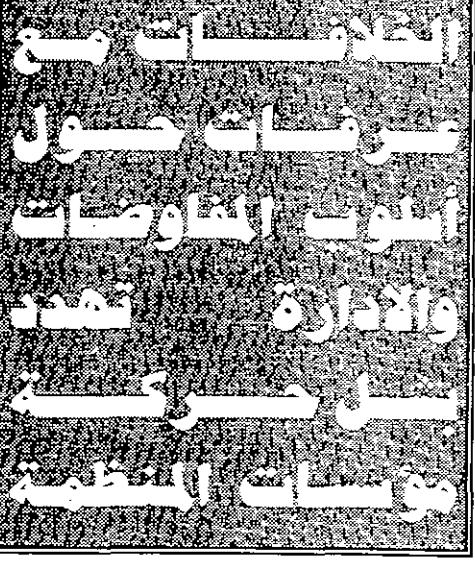 الخلافات مع
عرفات حول
أسلوب المفاوضات
والادارة تهدد
بشل حركة
مؤسسات المنظمة